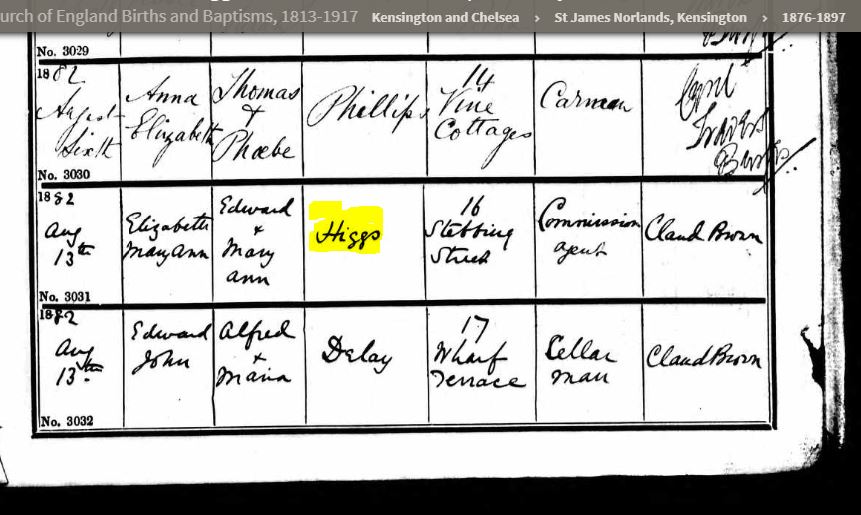 urch of England Births and Baptisms, 1813-1917 Kensington and Chelsea › St James Norlands, Kensington › 1876-1897
No. 3029
1882
August
Sixth
Anna
Elizabeth
Thomas
+
Phoebe
Phillips
14
Vine
Cottages
Carman
No. 3030
1882
Aug
13th
Elizabeth
Mary Ann
Edward
+
Mary
ann
Higgs
16
Stebbing
Street
Commission
agent
Claud Brown
No. 3031
1882
Aug
13th
Edward
John
Alfred
+
Maria
Delay
17
Wharf
Terrace
Cellar
man
Claud Brown
No. 3032